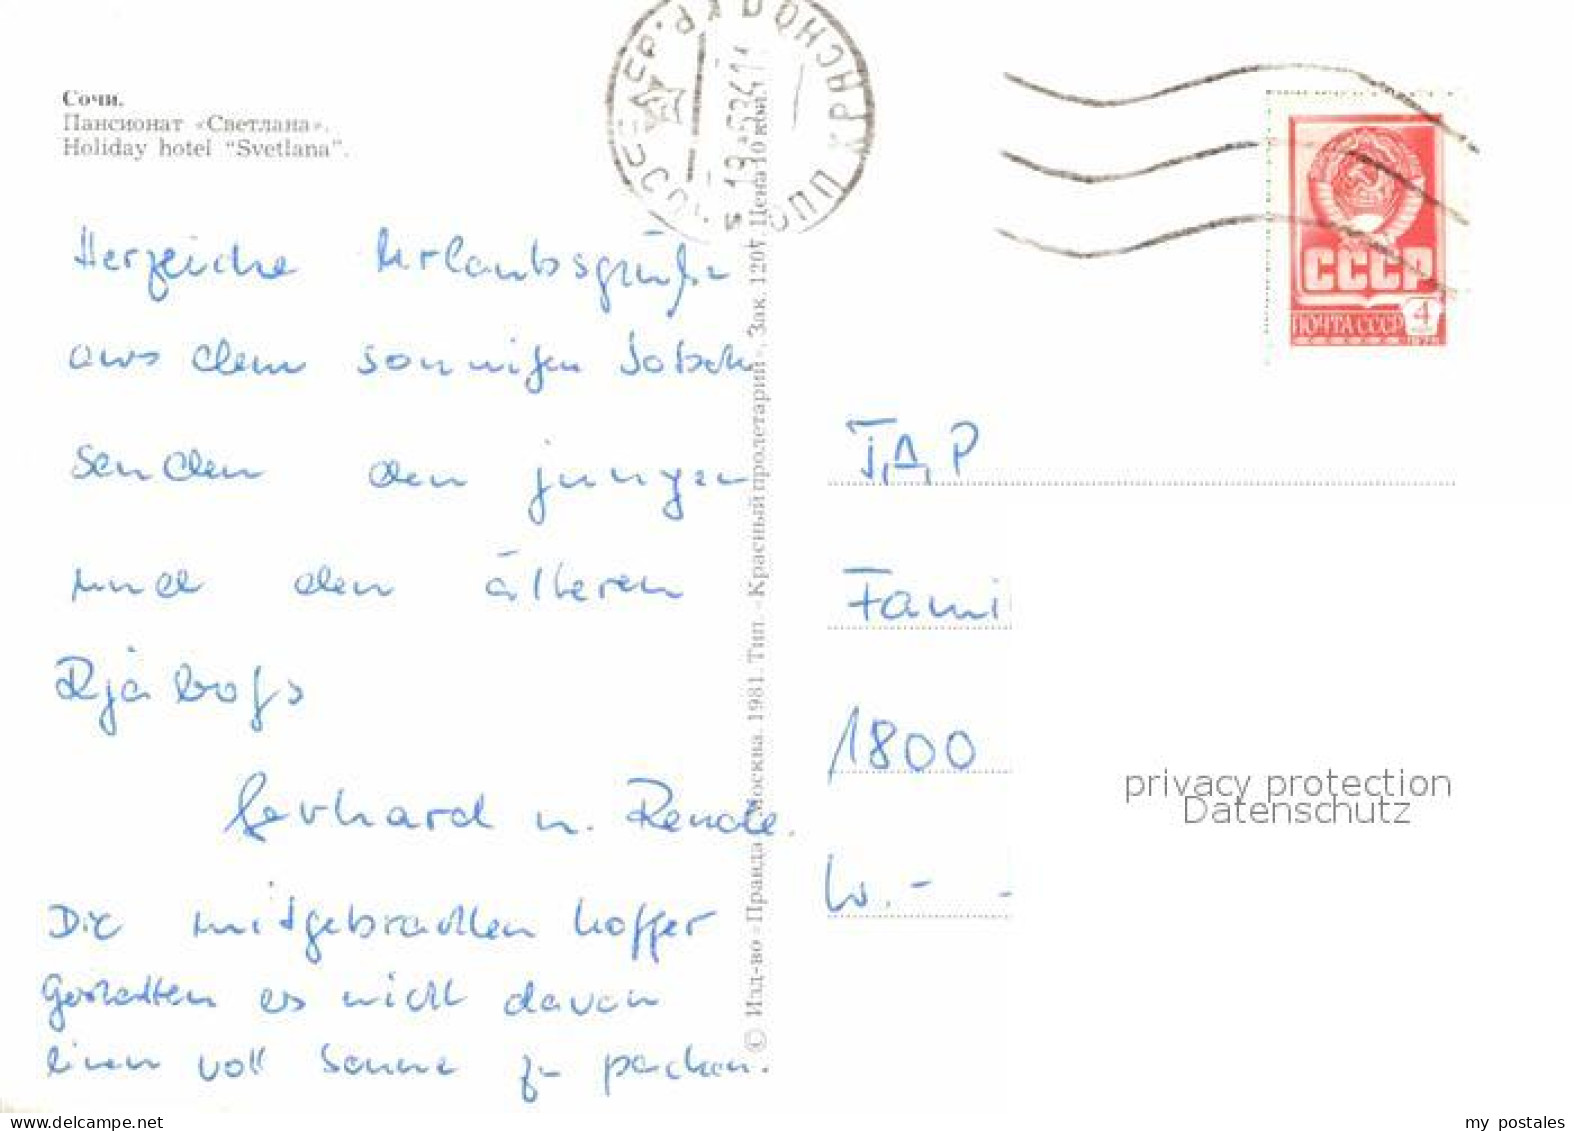 Сочи.
Пансионат «Светлана».
Holiday hotel “Svetlana”.
Herzeiche Urlaubsgrüße
aus dem sonnigen Sotschi
senden den jungen
und den älteren
Gerhard u. Renate.
Die mitgebrachten koffer
gestatten es nicht davon
einen voll Sonne zu packen.
© Изд-во «Правда», Москва. 1981. Тип. «Красный пролетарий». Зак. 1207 Цена 10 коп.
СССР
ПОЧТА СССР 4
ГДР
Fami
1800
W. - -
privacy protection
Datenschutz
my postales